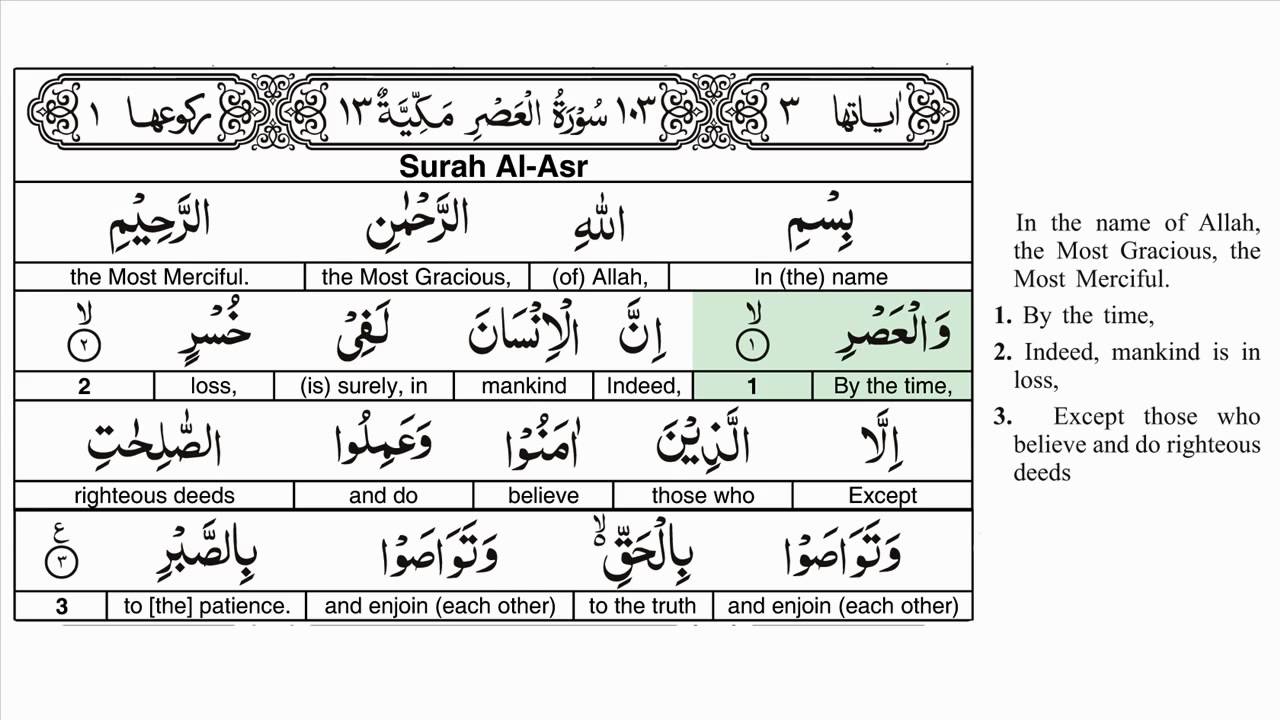 اٰیاتها ٣ ١٠٣ سُوْرَةُ الْعَصْرِ مَكِّيَّةٌ ١٣ ركوعها ١
Surah Al-Asr
بِسْمِ اللّٰهِ الرَّحْمٰنِ الرَّحِيْمِ
the Most Merciful. the Most Gracious, (of) Allah, In (the) name
وَالْعَصْرِ ۙ ١ اِنَّ الْاِنْسَانَ لَفِيْ خُسْرٍ ۙ ٢
2 loss, (is) surely, in mankind Indeed, 1 By the time,
اِلَّا الَّذِيْنَ اٰمَنُوْا وَعَمِلُوا الصّٰلِحٰتِ
righteous deeds and do believe those who Except
وَتَوَاصَوْا بِالْحَقِّ ۙ وَتَوَاصَوْا بِالصَّبْرِ ع ٣
3 to [the] patience. and enjoin (each other) to the truth and enjoin (each other)
In the name of Allah,
the Most Gracious, the
Most Merciful.
1. By the time,
2. Indeed, mankind is in
loss,
3. Except those who
believe and do righteous
deeds